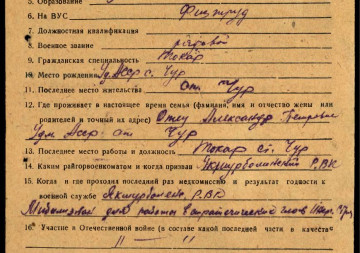 5. Образование
6. На ВУС Физтруд
7. Должностная квалификация
8. Военное звание рядовой
9. Гражданская специальность Токарь
10. Место рождения Удм. Аср. с. Чур
11. Последнее место жительства ст. Чур
12. Где проживает в настоящее время семья (фамилия, имя и отчество жены или
родителей и точный их адрес) Отец Александр Петрович
Удм. Аср. ст. Чур
13. Последнее место работы и должность Токарь ст. Чур
14. Каким райгорвоенкоматом и когда призван Якшурбодинский РВК
15. Когда и где проходил последний раз медкомиссию и результат годности к
военной службе Якшурбодинск. РВК
для работы
16. Участие в Отечественной войне (в составе какой последней части в качестве